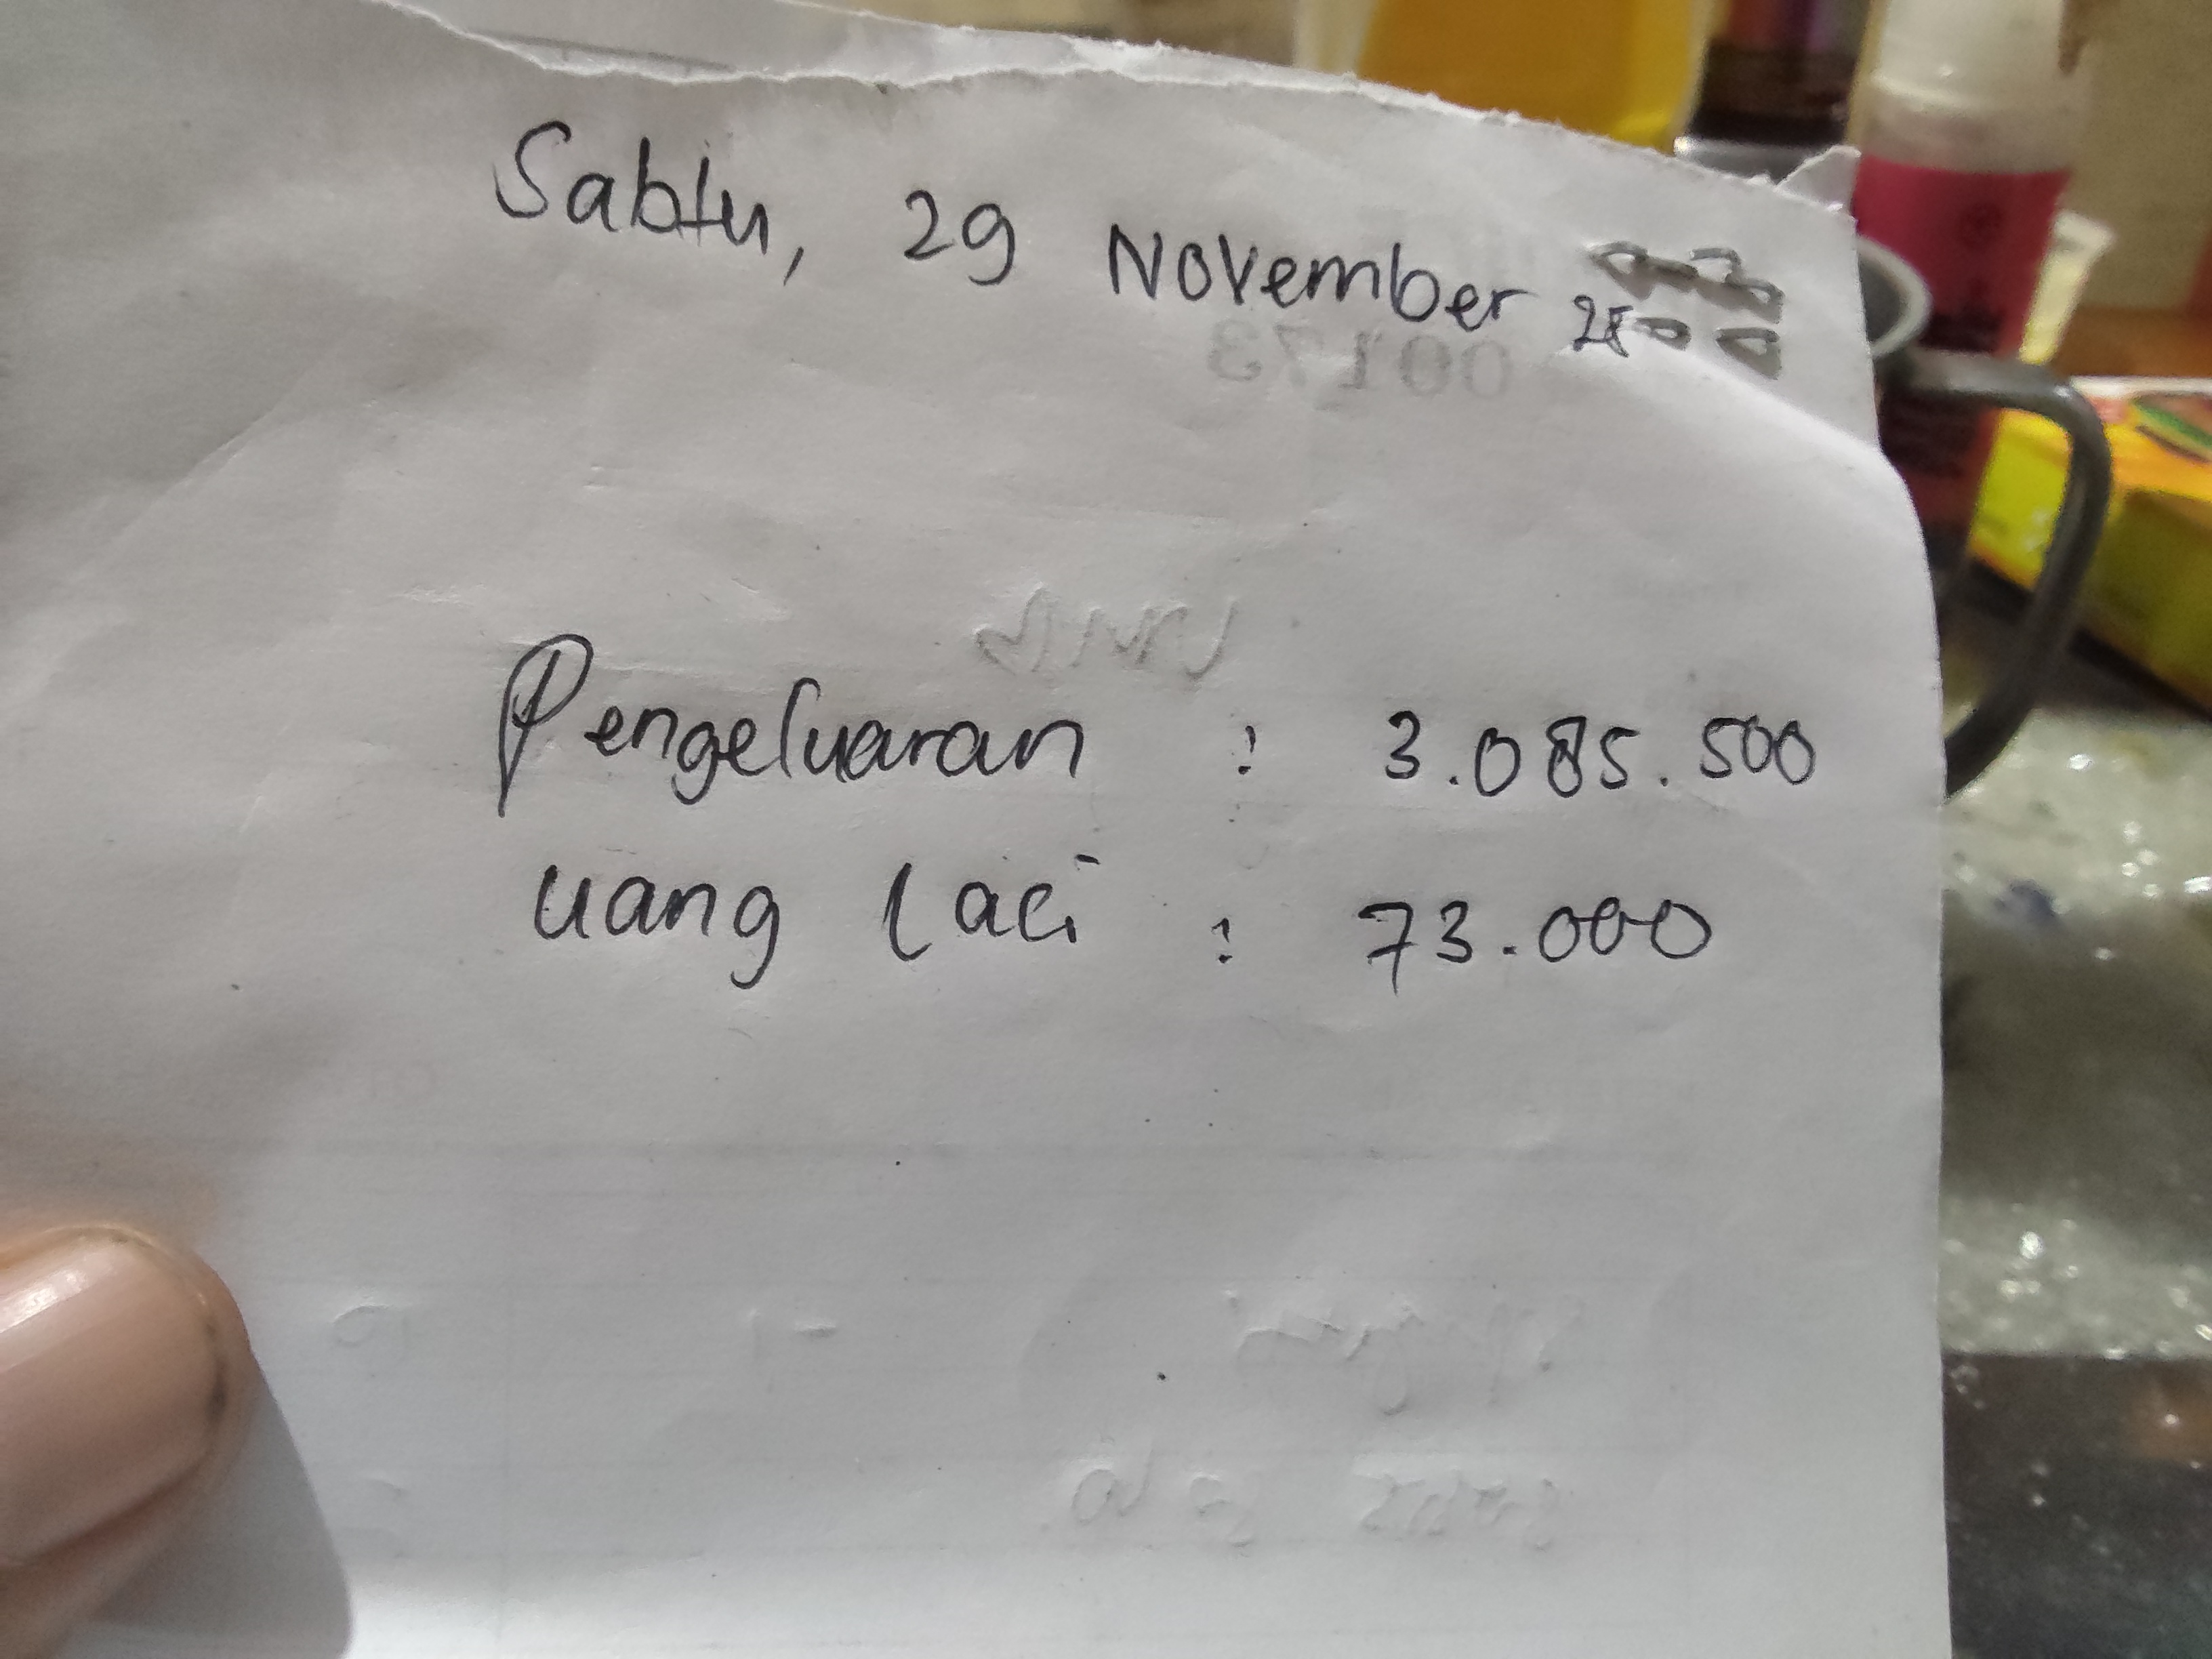 Sabtu, 29 November
Pengeluaran : 3.085.500
uang laci : 73.000
00173